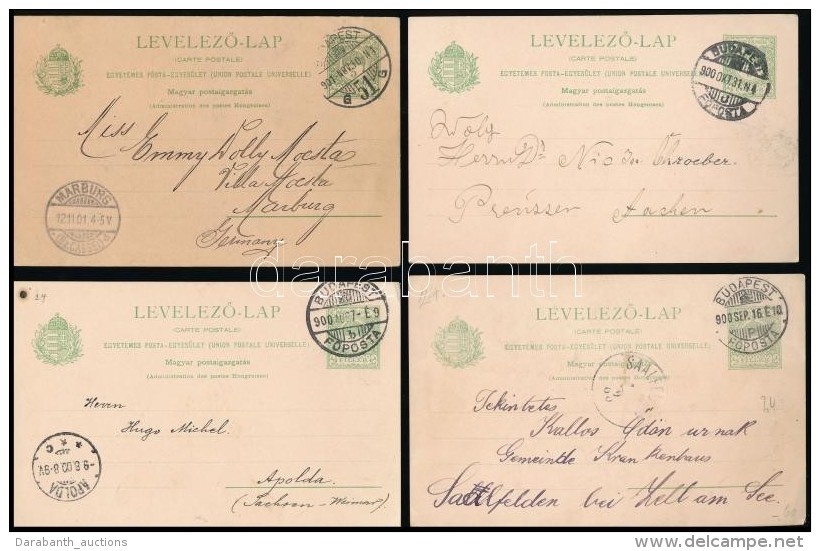 LEVELEZŐ-LAP
(CARTE POSTALE)
EGYETEMES POSTA-EGYESÜLET (UNION POSTALE UNIVERSELLE)
Magyar postaigazgatás
(Administration des postes Hongroises)
Miss Emmy Dolly Mocsta
Villa Mocsta
Marburg
Germany
MARBURG
12.11.01. 4-5 V
51
G G
LEVELEZŐ-LAP
(CARTE POSTALE)
EGYETEMES POSTA-EGYESÜLET (UNION POSTALE UNIVERSELLE)
Magyar postaigazgatás
(Administration des postes Hongroises)
BUDAPEST
900 OKT. 31. N 4
FŐPOSTA
Herrn Dr
Preussen Aachen
24
LEVELEZŐ-LAP
(CARTE POSTALE)
EGYETEMES POSTA-EGYESÜLET (UNION POSTALE UNIVERSELLE)
Magyar postaigazgatás
(Administration des postes Hongroises)
BUDAPEST
900 AUG. 7 - É 9
b
FŐPOSTA
Herrn
Hugo Michel.
Apolda.
(Sachsen-Weimar)
C
-9.8.00. 8-9V
APOLDA
LEVELEZŐ-LAP
(CARTE POSTALE)
EGYETEMES POSTA-EGYESÜLET (UNION POSTALE UNIVERSELLE)
Magyar postaigazgatás
(Administration des postes Hongroises)
BUDAPEST
900 SEP. 16. É 10
P
FŐPOSTA
SAAL
Tekintetes
Kallos Ödön urnak
Gemeinde Krankenhaus
Saalfelden bei Zell am See.
24
darabanth
Darabanth_auctions
delcampe.net